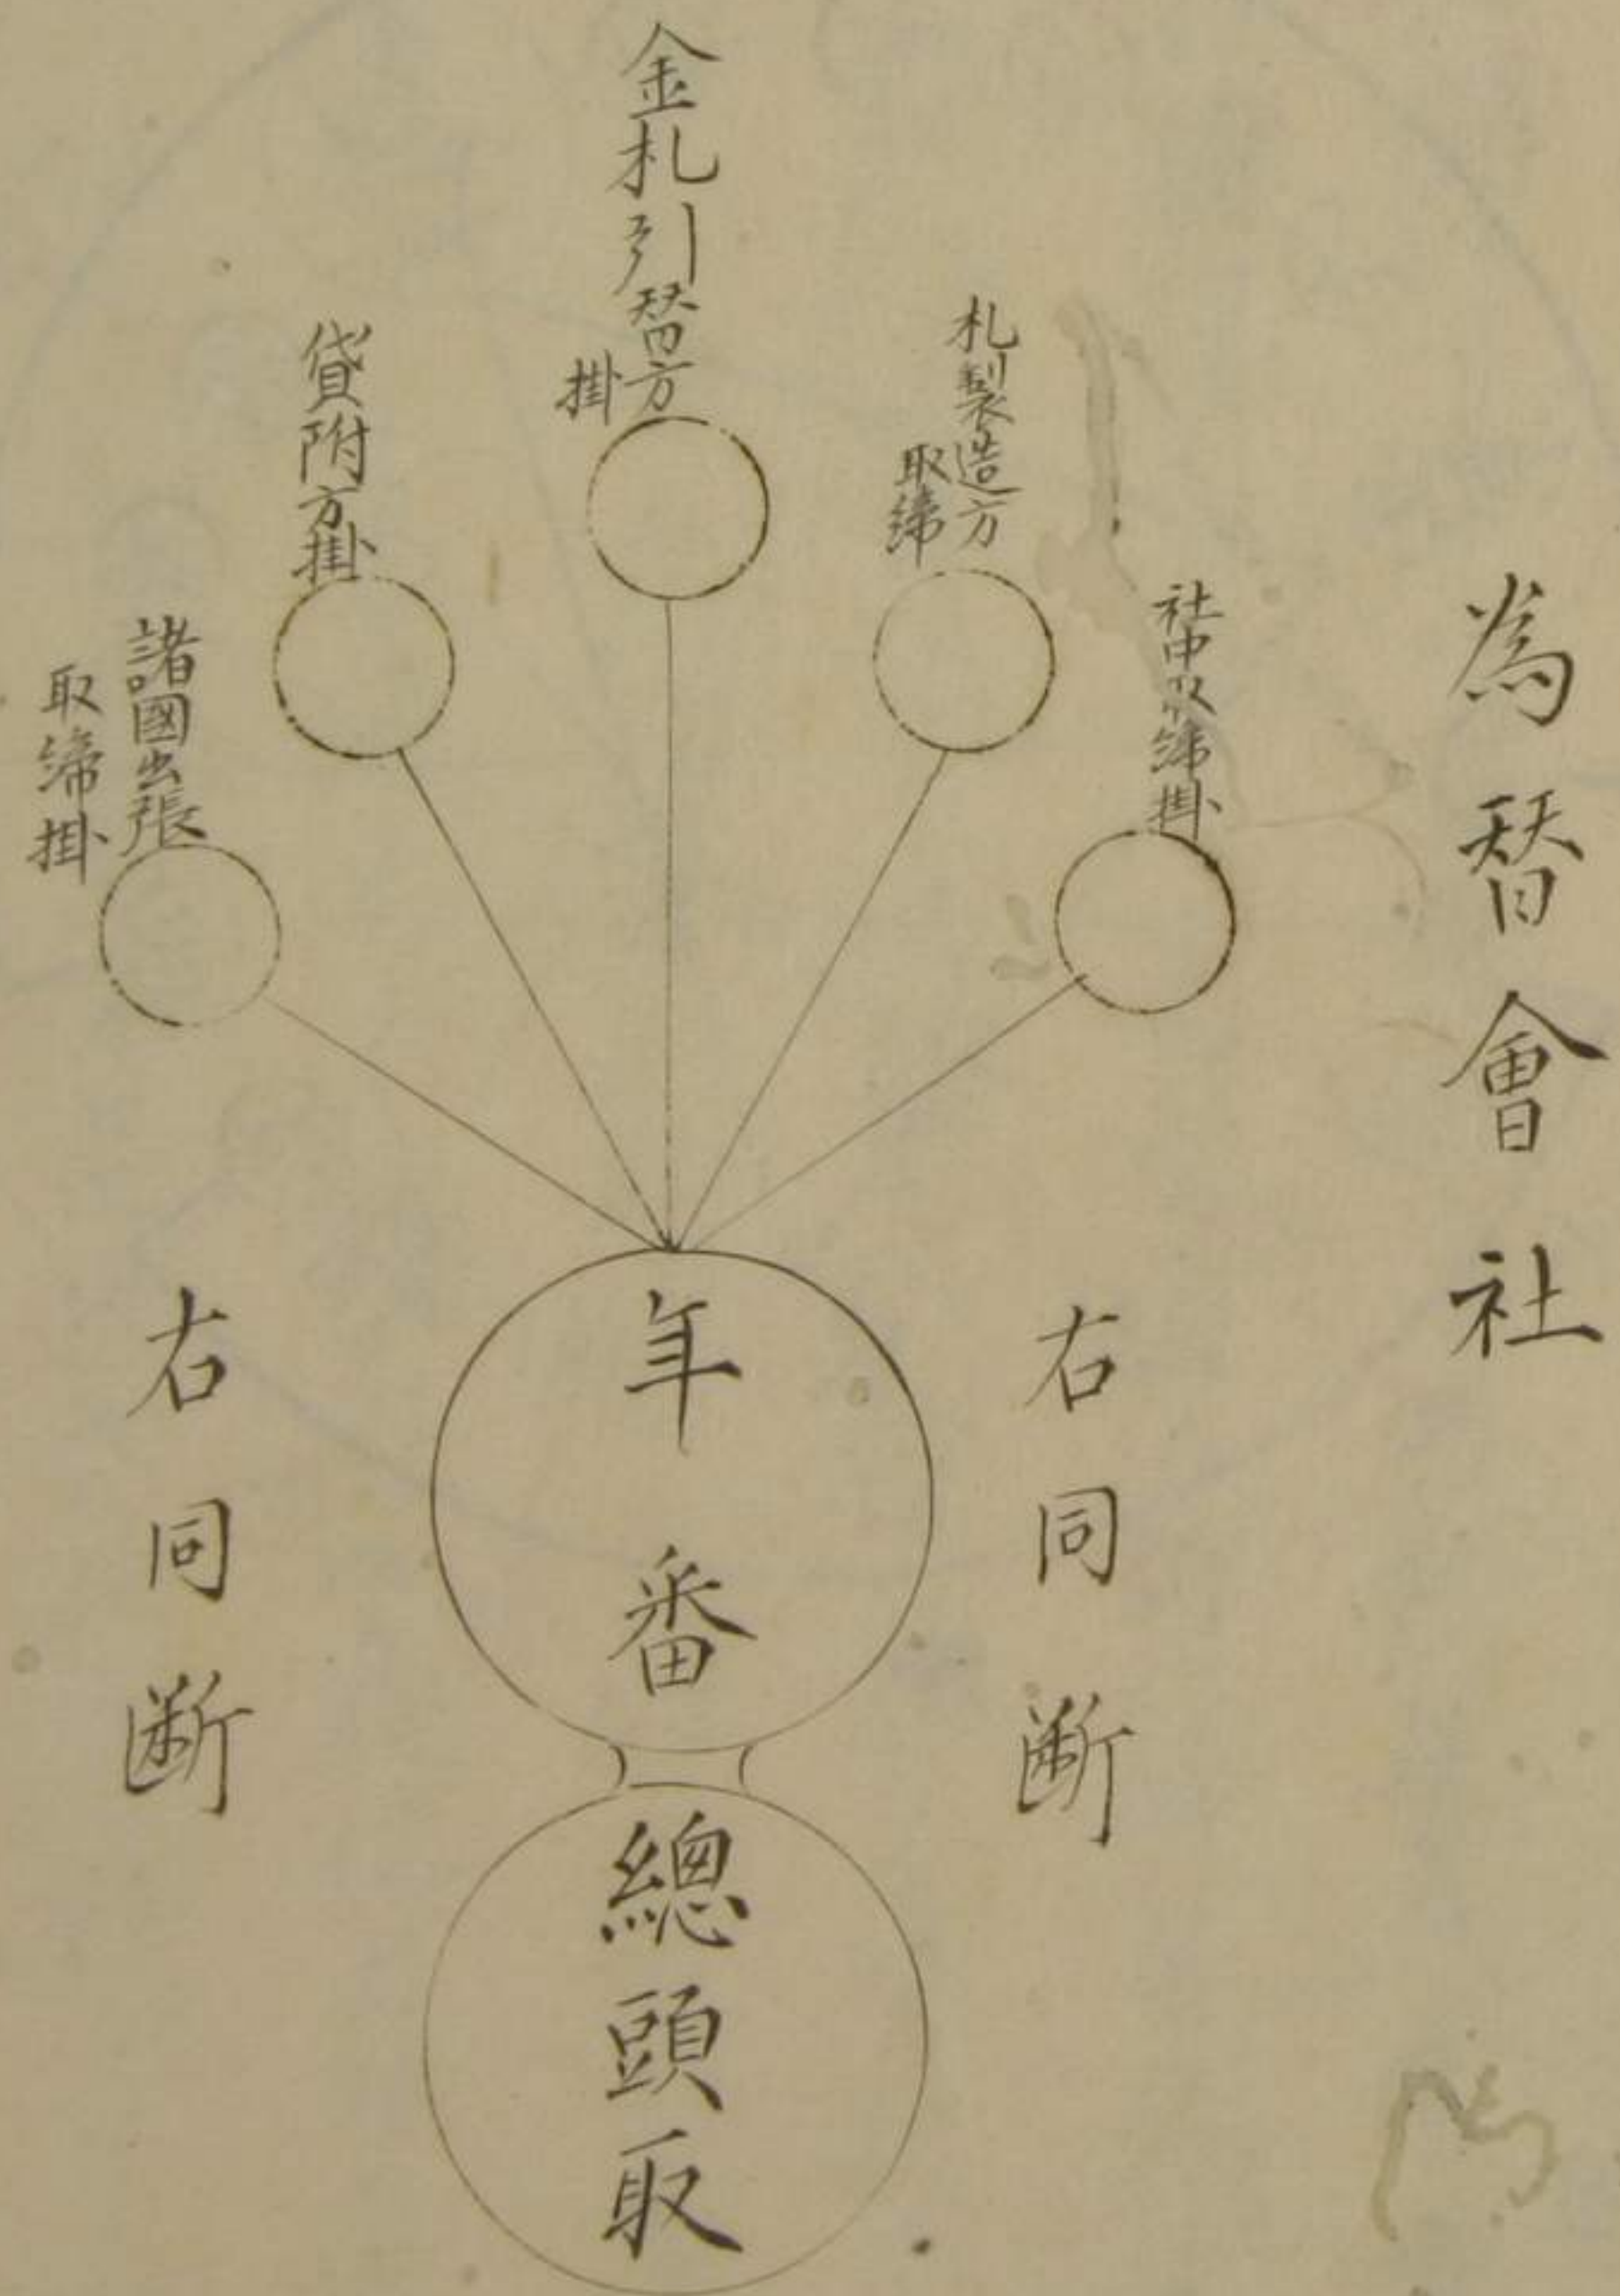 為替會社
社中取締掛
札製造方
取締
金札引替方
掛
貸附方掛
諸國出張
取締掛
右同断
年番
總頭取
右同断